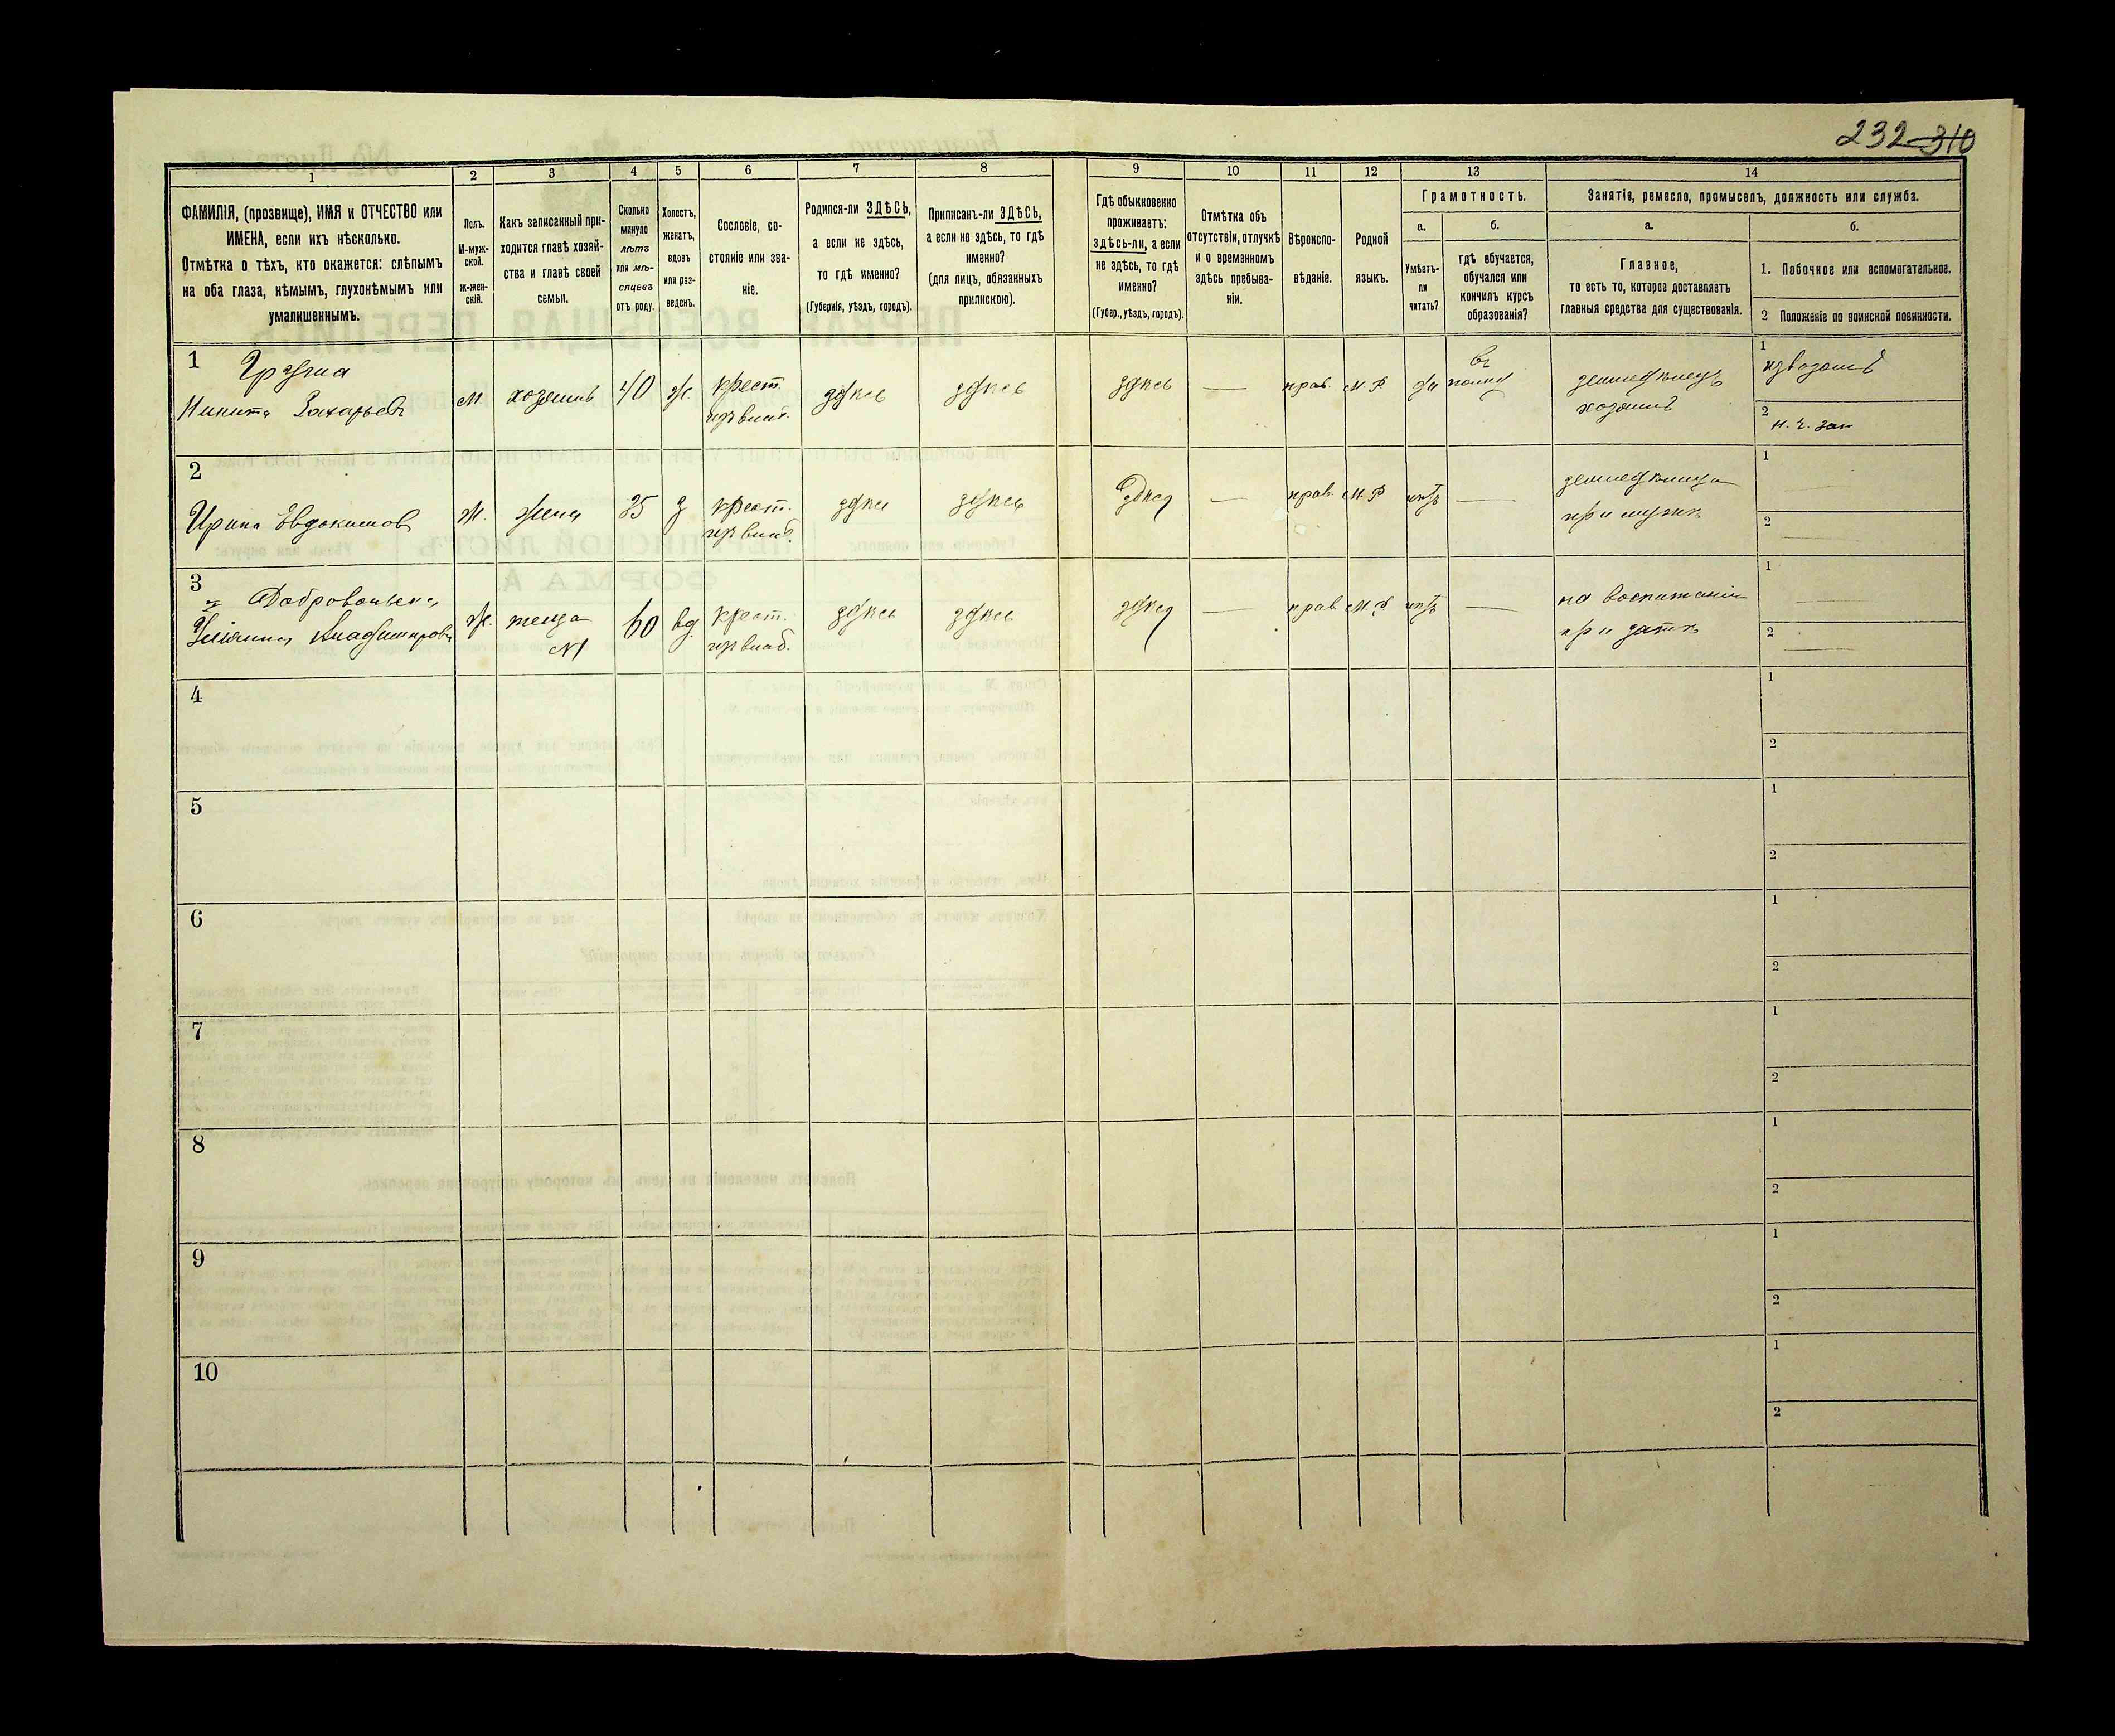 232 310
1 2 3 4 5 6 7 8 9 10 11 12 13 14
ФАМИЛІЯ, (прозвище), ИМЯ и ОТЧЕСТВО или
ИМЕНА, если ихъ нѣсколько.
Отмѣтка о тѣхъ, кто окажется: слѣпымъ
на оба глаза, нѣмымъ, глухонѣмымъ или
умалишеннымъ.
Полъ.
М-муж-
ской.
ж-жен-
скій.
Какъ записанный при-
ходится главѣ хозяй-
ства и главѣ своей
семьи.
Сколько
минуло
лѣтъ
или мѣ-
сяцевъ
отъ роду.
Холостъ,
женатъ,
вдовъ
или раз-
веденъ.
Сословіе, со-
стояніе или зва-
ніе.
Родился-ли ЗДѢСЬ,
а если не здѣсь,
то гдѣ именно?
(Губернія, уѣздъ, городъ).
Приписанъ-ли ЗДѢСЬ,
а если не здѣсь, то гдѣ
именно?
(для лицъ, обязанныхъ
припискою).
Гдѣ обыкновенно
проживаетъ:
здѣсь-ли, а если
не здѣсь, то гдѣ
именно?
(Губер., уѣздъ, городъ).
Отмѣтка объ
отсутствіи, отлучкѣ
и о временномъ
здѣсь пребыва-
ніи.
Вѣроиспо-
вѣданіе.
Родной
языкъ.
Грамотность.
а.
Умѣетъ-
ли
читать?
б.
гдѣ обучается,
обучался или
кончилъ курсъ
образованія?
Занятія, ремесло, промыселъ, должность или служба.
а.
Главное,
то есть то, которое доставляетъ
главныя средства для существованія.
б.
1. Побочное или вспомогательное.
2 Положеніе по воинской повинности.
1
Никита Захарьевъ
м. хозяинъ 40 ж. крест. здѣсь здѣсь здѣсь — прав. м. р. да
въ
полку
земледѣлецъ
хозяинъ
1
2
2
Ирина Евдокимов
ж. жена 35 з крест. здѣсь здѣсь здѣсь — прав. м. р нѣтъ —
земледѣлица
при мужѣ
1
2
3
Добровольск
Владимиров
ж. теща 60 вд. крест. здѣсь здѣсь здѣсь — прав м. р нѣтъ —
на воспитаніи
при зятѣ
1
2
4
1
2
5
1
2
6
1
2
7
1
2
8
1
2
9
1
2
10
1
2